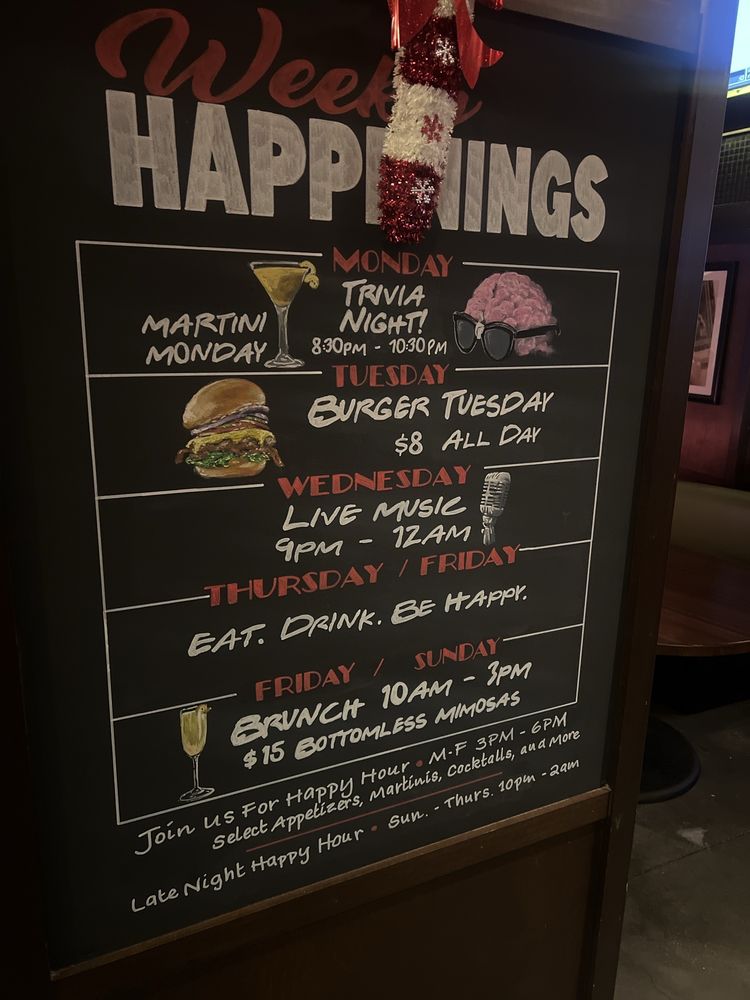 Weekly
HAPPENINGS
MONDAY
MARTINI
MONDAY
TRIVIA
NIGHT!
8:30PM - 10:30PM
TUESDAY
BURGER TUESDAY
$8 ALL DAY
WEDNESDAY
LIVE MUSIC
9PM - 12AM
THURSDAY / FRIDAY
EAT. DRINK. BE HAPPY.
FRIDAY / SUNDAY
BRUNCH 10AM - 3PM
$15 BOTTOMLESS MIMOSAS
Join Us For Happy Hour • M-F 3PM - 6PM
Select Appetizers, Martinis, Cocktails, and More
Late Night Happy Hour • Sun. - Thurs. 10pm - 2am